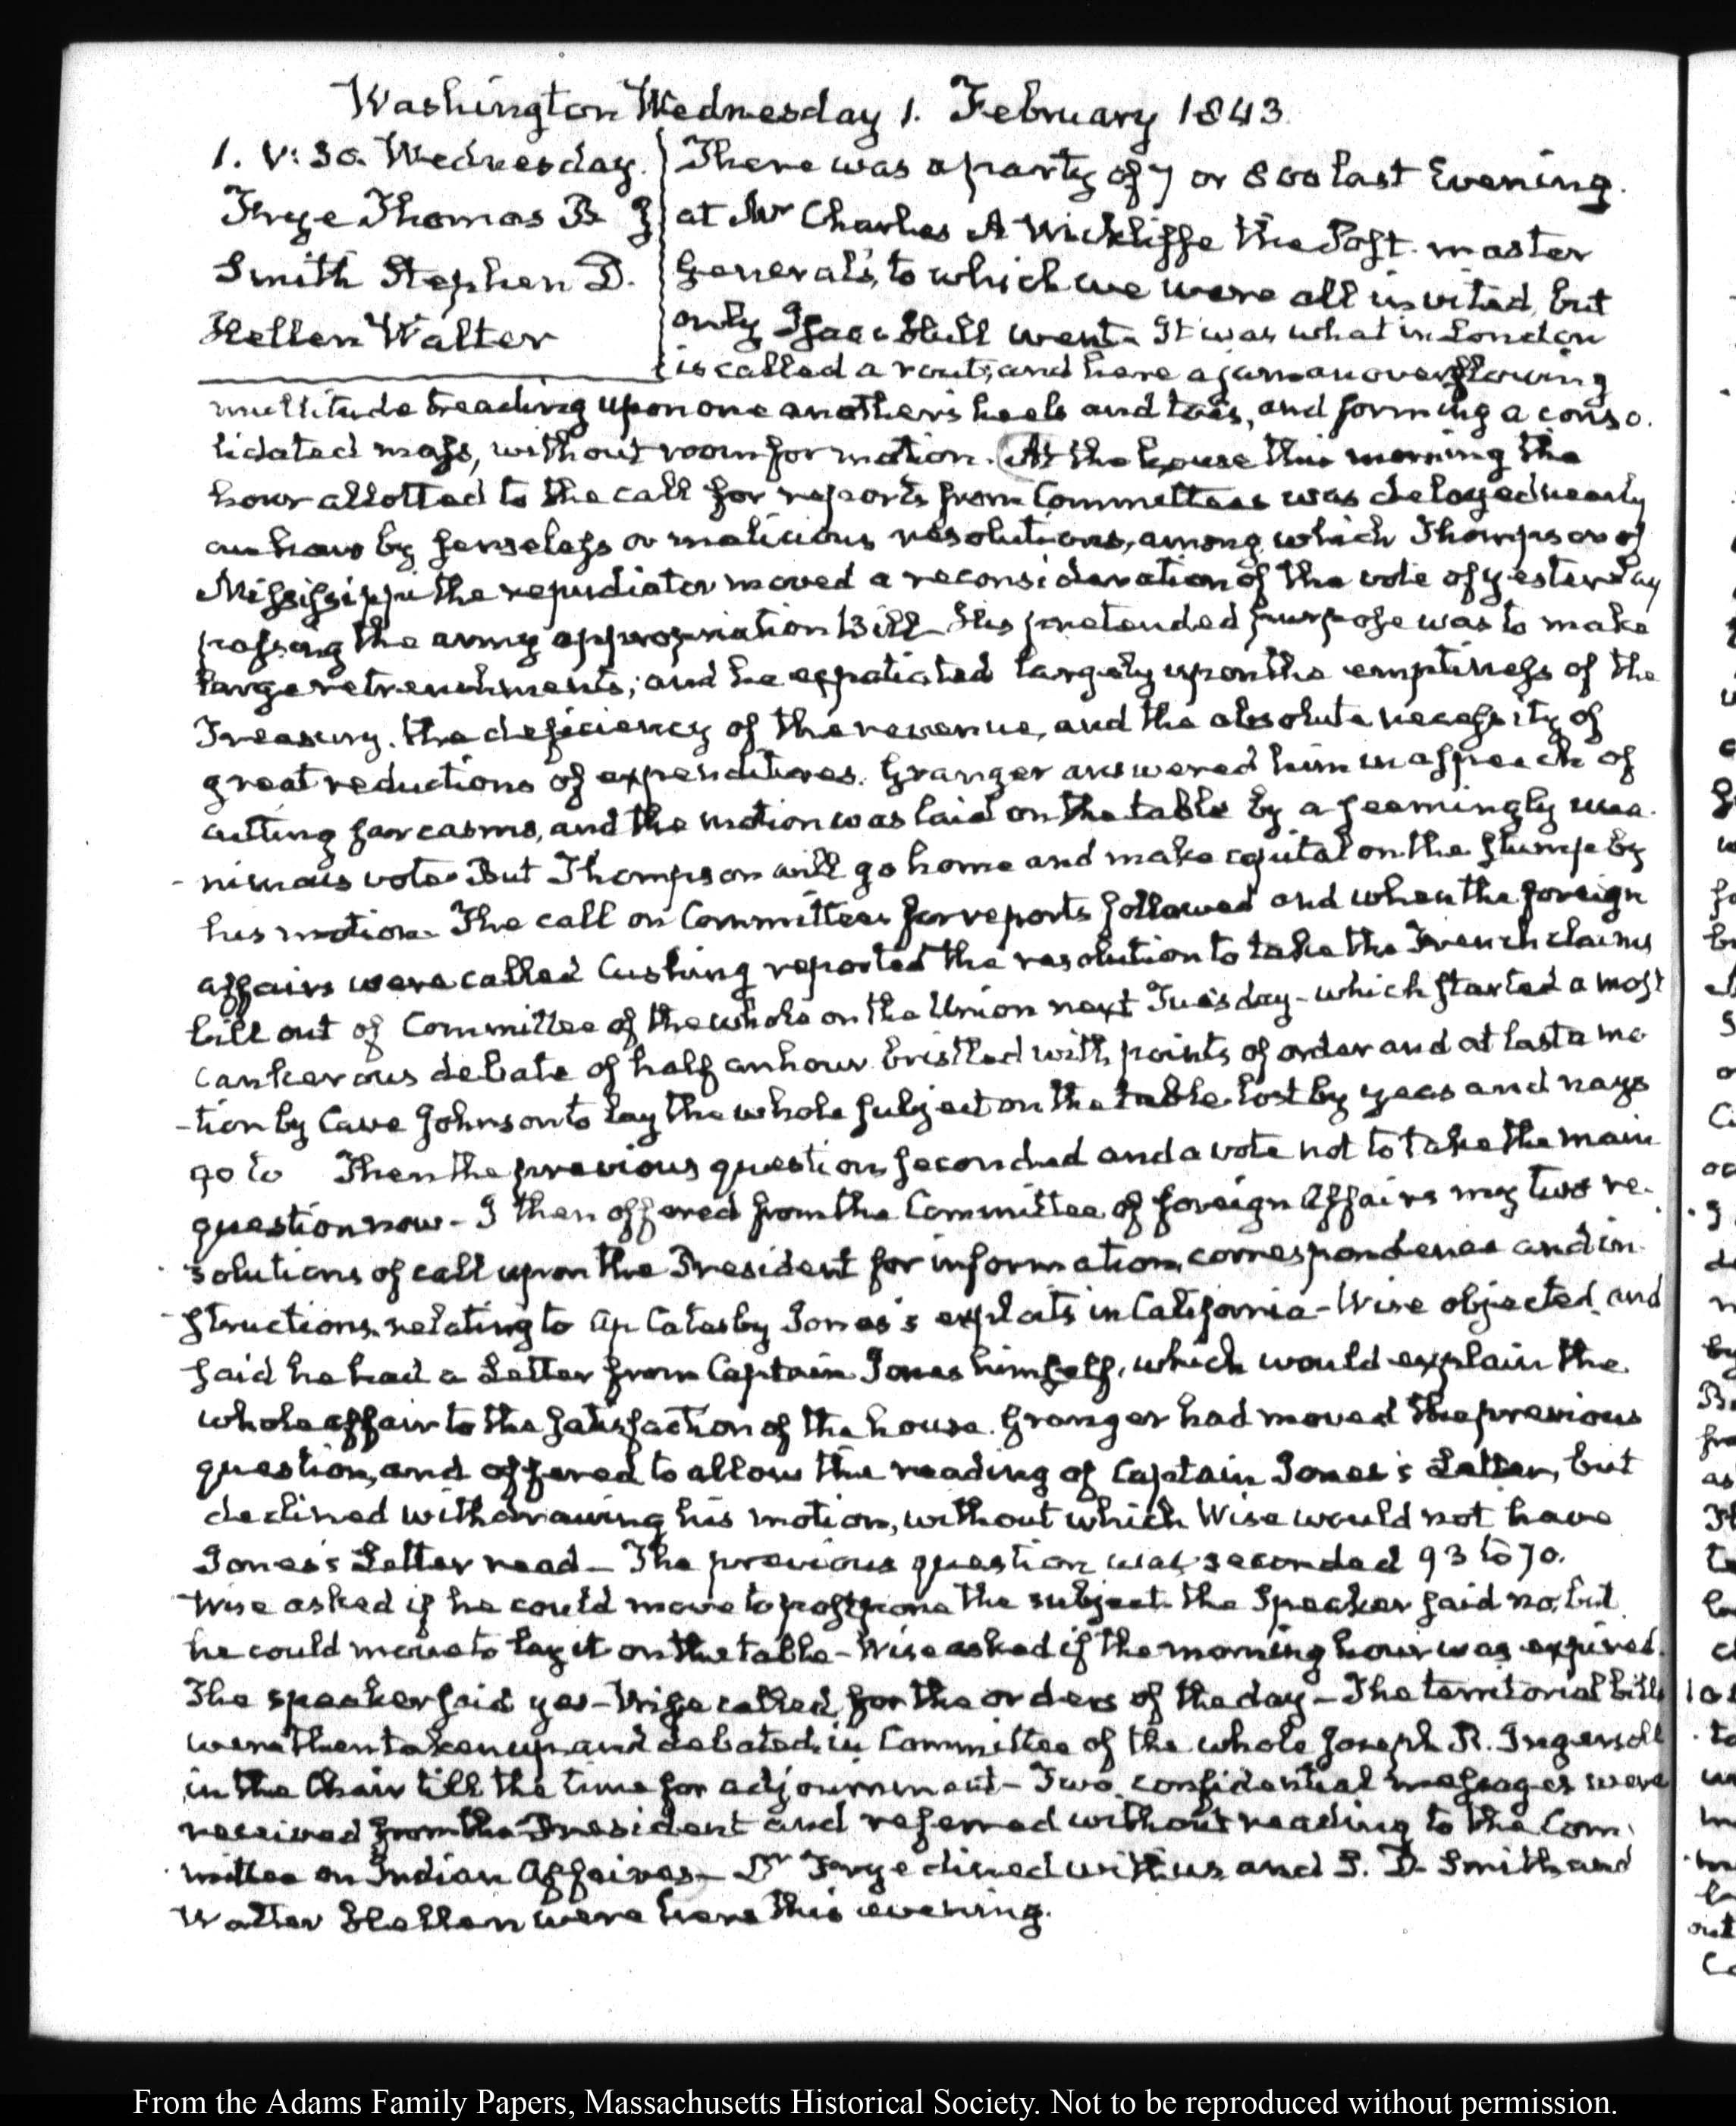 Washington Wednesday 1. February 1843.
1. V: 30. Wednesday.
Frye Thomas B
Smith Stephen D.
Hellen Walter
There was a party of 7 or 800 last Evening.
at Mr Charles A Wickliffe the Post-master
General's, to which we were all invited, but
only Isaac Hull went. It was what in London
is called a rout; and here a jam an overflowing
multitude treading upon one another's heels and toes, and forming a conso.
lidated mass, without room for motion. At the house this morning the
hour allotted to the call for reports from Committees was delayed nearly
an hour by senseless or malicious resolutions, among which Thompson of
Mississippi the repudiator moved a reconsideration of the vote of yesterday
passing the army appropriation Bill - His pretended purpose was to make
large retrenchments; and he expatiated largely upon the emptiness of the
Treasury. the deficiency of the revenue, and the absolute necessity of
great reductions of expenditures. Granger answered him in a speech of
cutting sarcasms, and the motion was laid on the table by a seemingly una-
nimous vote. But Thompson will go home and make capital on the stump by
his motion. The call on Committees for reports followed and when the foreign
affairs were called Cushing reported the resolution to take the French claims
bill out of Committee of the whole on the Union next Tuesday - which started a most
cankerous debate of half an hour bristled with points of order and at last a mo
-tion by Cave Johnson to lay the whole subject on the table lost by yeas and nays
90 to Then the previous question seconded and a vote not to take the main
question now - I then offered from the Committee of foreign Affairs my two re-
solutions of call upon the President for information, correspondence and in-
structions, relating to Ap Catesby Jones's exploits in California - Wise objected, and
said he had a Letter from Captain Jones himself, which would explain the
whole affair to the satisfaction of the house. Granger had moved the previous
question, and offered to allow the reading of Captain Jones's Letter, but
declined withdrawing his motion, without which Wise would not have
Jones's Letter read - The previous question was seconded 93 to 70.
Wise asked if he could move to postpone the subject. the Speaker said no, but
he could move to lay it on the table - Wise asked if the morning hour was expired.
The speaker said yes - Wise called for the orders of the day - The territorial bills
were then taken up and debated in Committee of the whole Joseph R. Ingersoll
in the Chair till the time for adjournment - Two confidential messages were
received from the President and referred without reading to the Com-
mittee on Indian Affaires - Dr Frye dined with us and S. D. Smith and
Walter Hellen were here this evening.
From the Adams Family Papers, Massachusetts Historical Society. Not to be reproduced without permission.